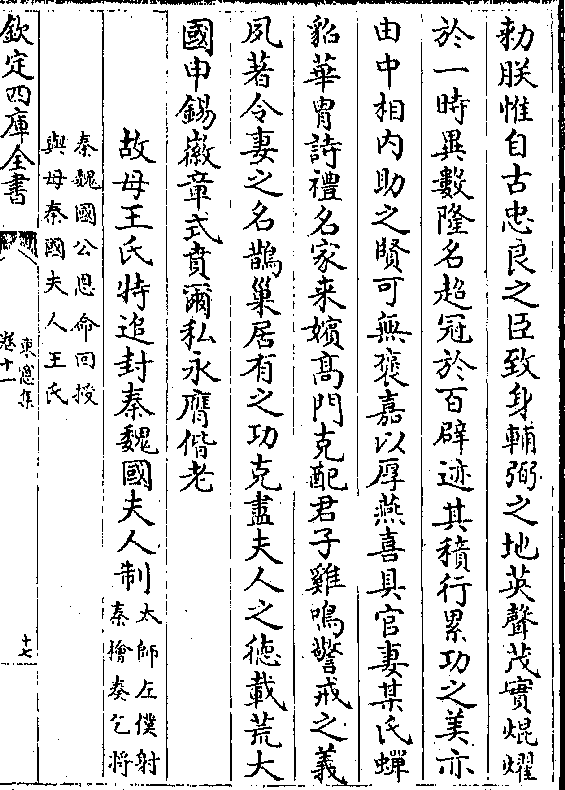 勅朕惟自古忠良之臣致身輔弼之地英聲茂實焜燿
於一時異數隆名超冠於百辟迹其積行累功之美亦
由中相内助之賢可無褒嘉以厚燕喜具官妻某氏蟬
貂華胄詩禮名家来嬪髙門克配君子雞鳴警戒之義
夙著令妻之名鵲巢居有之功克盡夫人之徳載荒大
國申錫徽章式賁爾私永膺偕老
故母王氏特追封秦魏國夫人制
太師左僕射
秦檜奏乞将
秦魏國公恩命回授
與母秦國夫人王氏
欽定四庫全書
東窻集
卷十一
十七